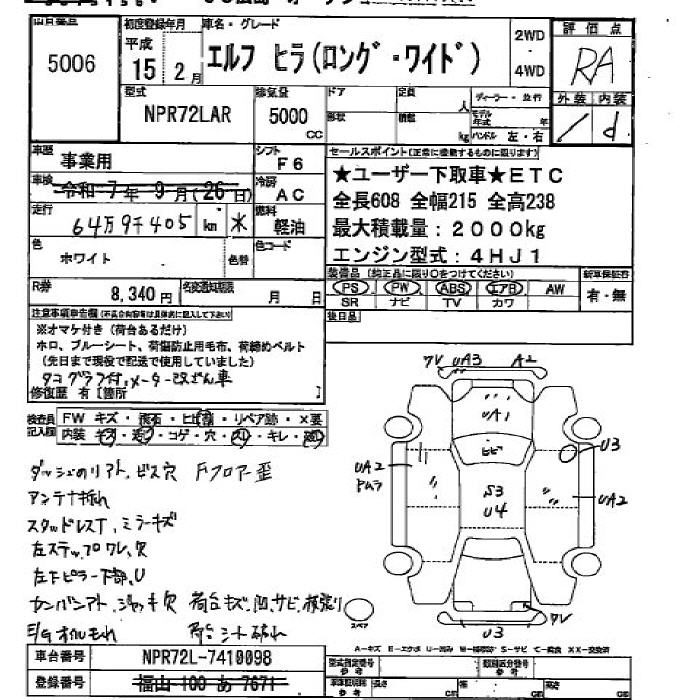 5006
初度登録年月
車名・グレード
評価点
平成
15 2月
エルフ ヒラ(ロング・ワイド)
2WD
・
4WD
RA
外装 内装
型式
排気量
ドア
定員
NPR72LAR
5000
cc
人
形状
積載
kg
ハンドル 左・右
d
車歴
事業用
シフト
F6
セールスポイント(正常に稼動するものに限ります)
車検
令和 7年 9月(26日)
冷房
AC
★ユーザー下取車★ETC
全長608 全幅215 全高238
走行
64万9千405 km
燃料
軽油
最大積載量:2000kg
エンジン型式:4HJ1
色
ホワイト
色替
色コード
装備品(純正品に限り○をつけてください)
新車保証書
R券
8,340円
名変通知期限
月 日
PS PW ABS エアB AW
有・無
SR ナビ TV カワ
後日品
注意事項申告欄(不具合内容等は具体的に記入して下さい)
※オマケ付き(荷台あるだけ)
ホロ、ブルーシート、荷傷防止用毛布、荷締めベルト
(先日まで現役で配送で使用していました)
タコグラフ付、メーター改ざん車
修復歴 有[箇所 ]
検査員
記入欄
FW キズ・飛石・ヒビ・リペア跡・×要
内装・キズ・コゲ・穴・キレ
ダッシュのリアト、ビス穴 Fフロアー歪
アンテナ折れ
スタッドレスT、ミラーキズ
左ステップワレ、欠
左下ピラー下部、U
カンバンアト、ジャッキ欠 荷台キズ、凹、サビ、板張り
E/gオイルもれ 荷台シート破れ
ワレ UA3 A2
UA1
ヒビ
U3
UA2
S3
U4
UA2
ワレ
U3
スペア
車台番号
NPR72L-7410098
登録番号
福山 100 あ 7671
型式指定番号
参考
類別区分番号
参考